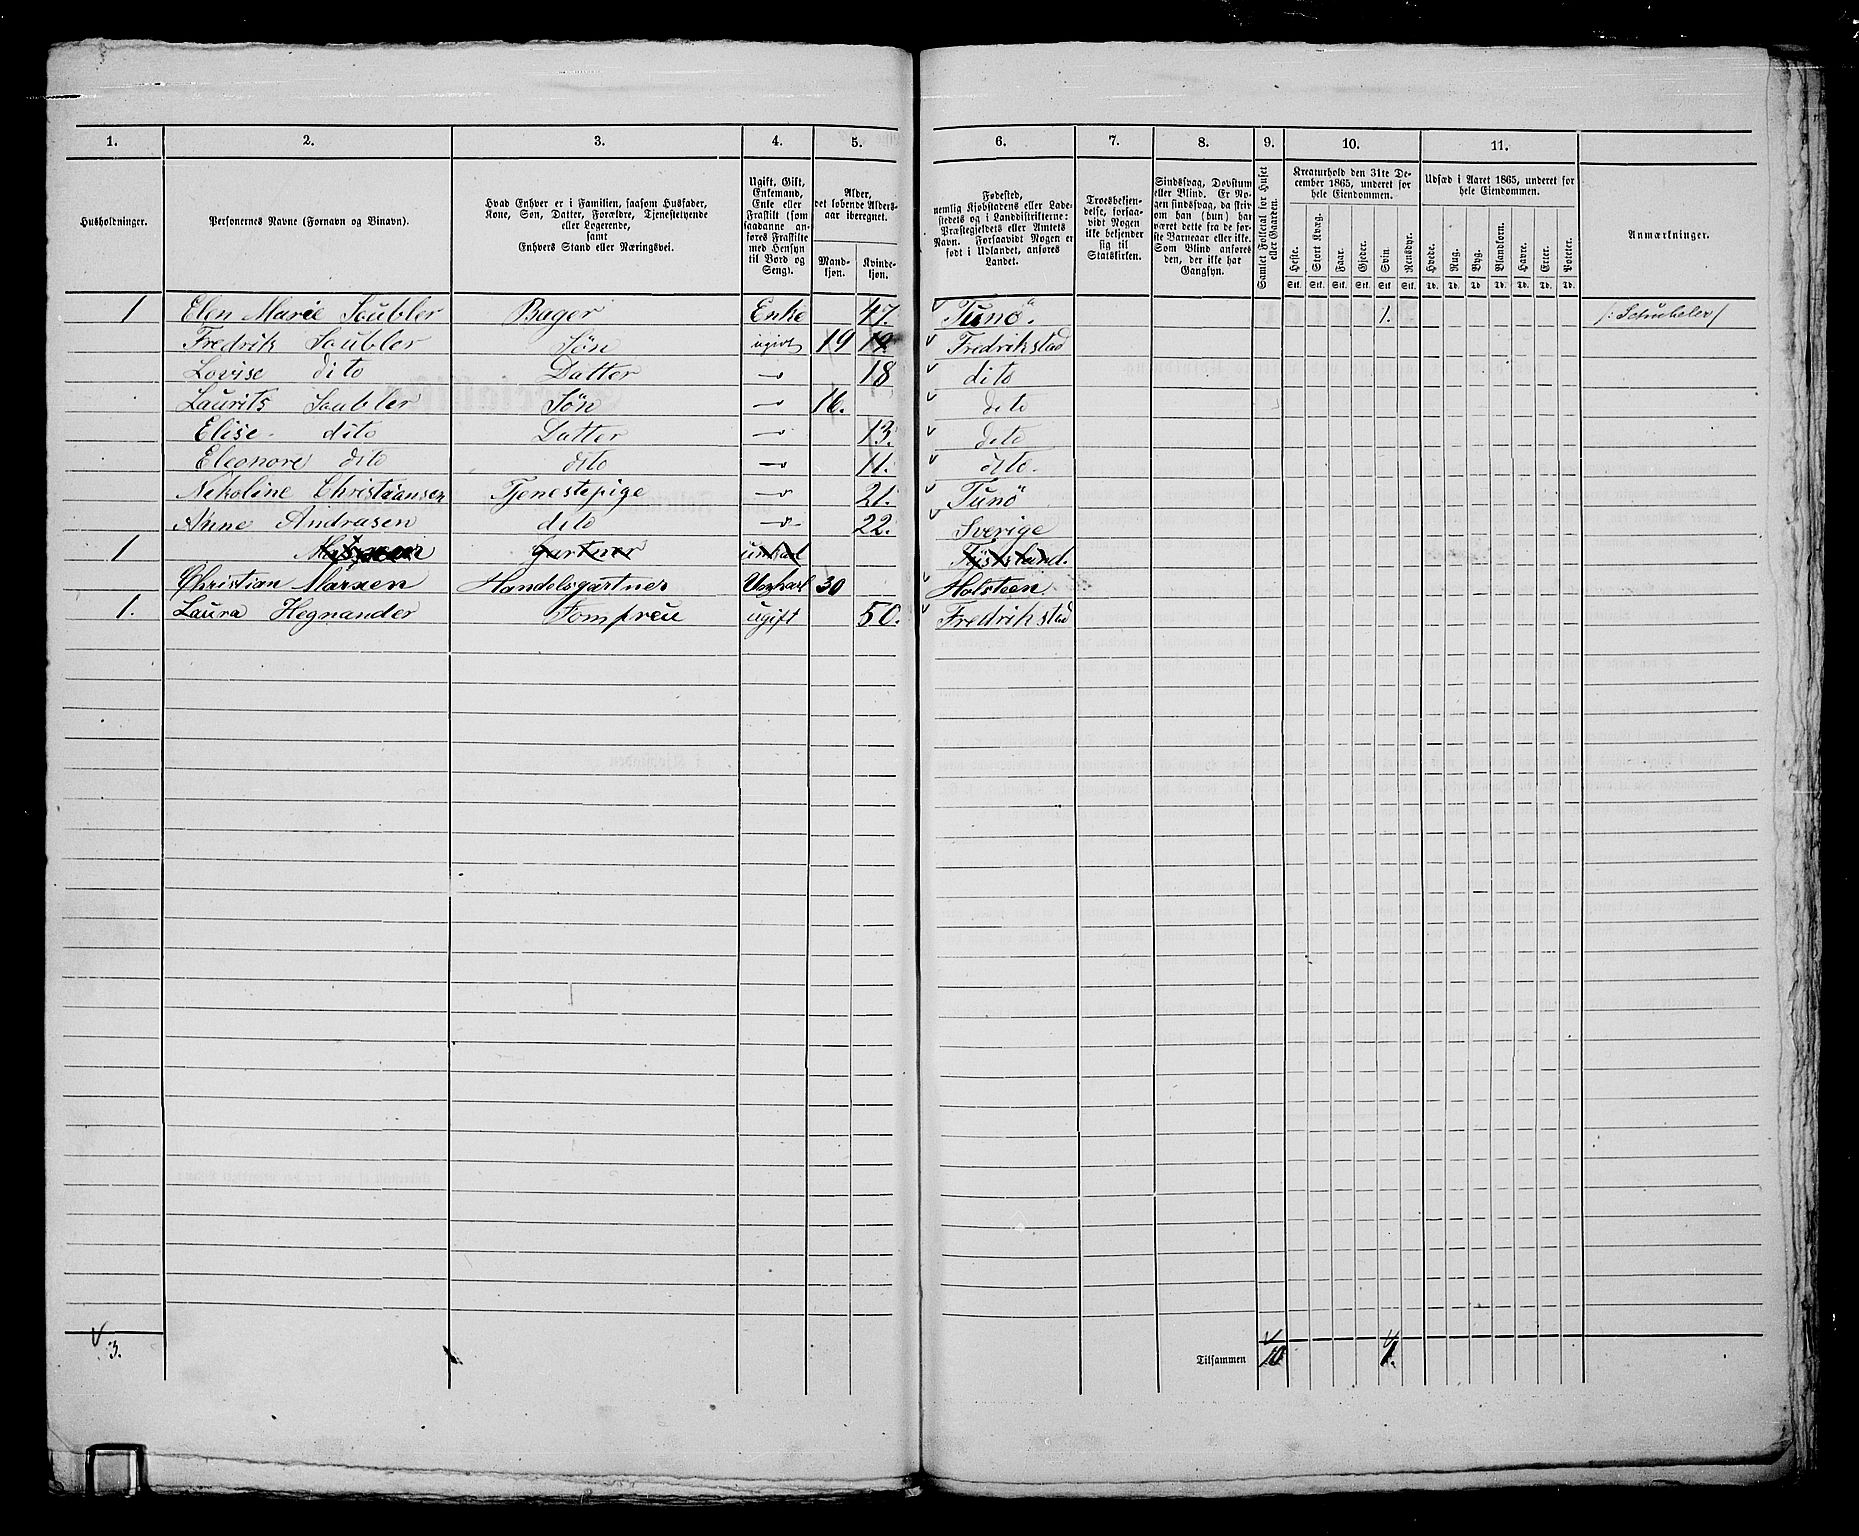 1. 2. 3. 4. 5. 6. 7. 8. 9. 10. 11.
Husholdninger.
Personernes Navne (Fornavn og Binavn).
Hvad Enhver er i Familien, saasom Husfader,
Kone, Søn, Datter, Forældre, Tjenestetyende
eller Logerende,
samt
Enhvers Stand eller Næringsvei.
Ugift, Gift,
Enkemand,
Enke eller
Fraskilt (som
saadanne an-
føres Fraskilte
med Hensyn
til Bord og
Seng).
Alder,
det løbende Alders-
aar iberegnet.
Mand-
kjøn.
Kvinde-
kjøn.
Fødested,
nemlig Kjøbstadens eller Lade-
stedets og i Landdistrikterne:
Præstegjeldets eller Amtets
Navn. Forsaavidt Nogen er
født i Udlandet, anføres
Landet.
Troesbekjen-
delse, forsaa-
vidt Nogen
ikke bekjender
sig til
Statskirken.
Sindssvag, Døvstum
eller Blind. Er No-
gen sindssvag, da skriv
om han (hun) har
været dette fra de før-
ste Barneaar eller ikke.
Som Blind anføres
den, der ikke har
Gangsyn.
Samlet Folketal for Huset
eller Gaarden.
Kreaturhold den 31te De-
cember 1865, underet for
hele Eiendommen.
Heste. Stort Kvæg. Faar. Gjeder. Svin. Rensdyr.
Stk. Stk. Stk. Stk. Stk. Stk.
Udsæd i Aaret 1865, underet for
hele Eiendommen.
Hvede. Rug. Byg. Blandkorn. Havre. Erter. Poteter.
Td. Td. Td. Td. Td. Td. Td.
Anmærkninger.
1 Elen Marie Soubler Bager Enke 47. Tunö. 1. /: Schübeler /
Fredrik Soubler Søn ugivt 19 19 Fredrikstad
Lovise dito Datter 18 dito
Laurits Soubler Søn 16. dito
Elise dito Datter 13. dito
Eleonore dito dito 11. dito.
Nekoline Christiansen Tjenestepige 21. Tunö
Anne Andrasen dito 22. Sverige
1 Gartner
Christian Marxen Handelsgartner Ungkarl 30 Holsteen
1. Laura Hegnander Jomfreu ugift 50. Fredrikstad
3. Tilsammen 10 1.